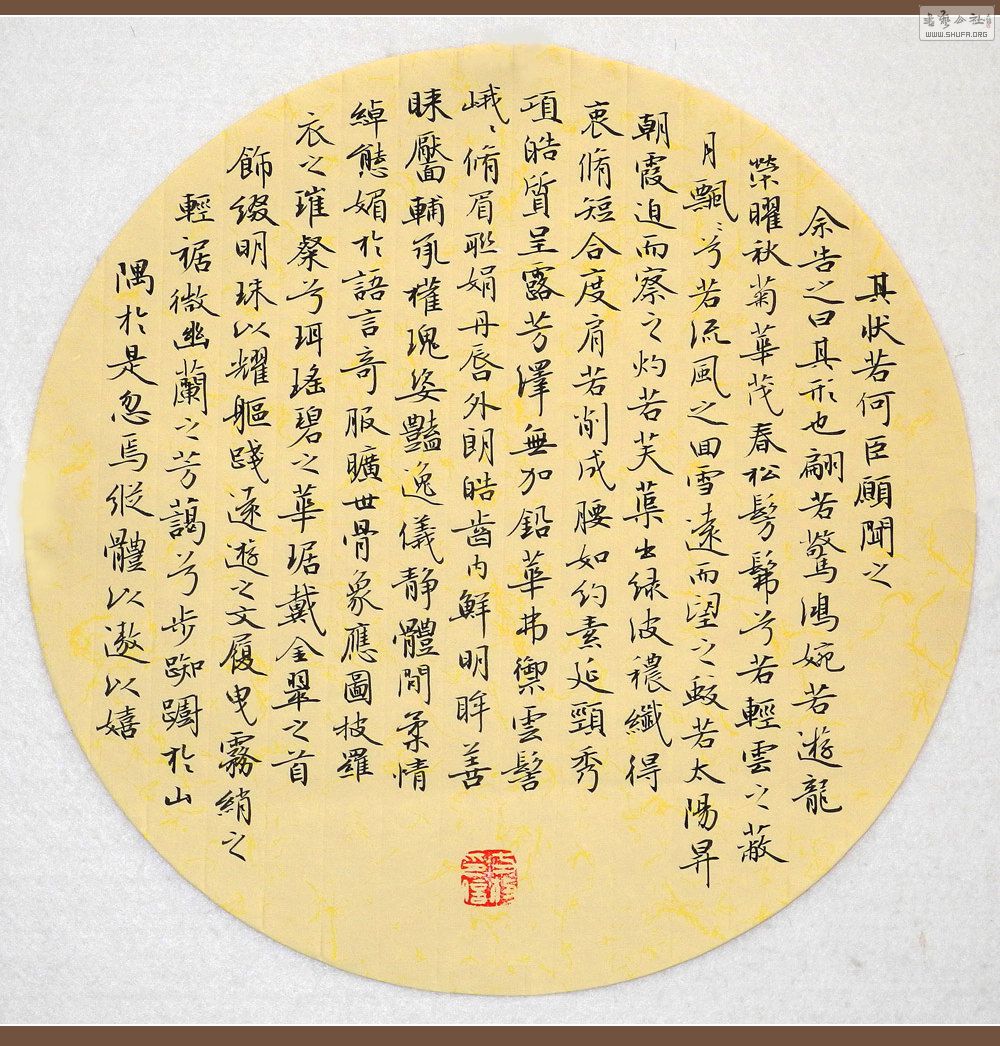 其状若何臣願聞之
余告之曰其形也翩若驚鴻婉若遊龍
榮曜秋菊華茂春松髣髴兮若輕雲之蔽
月飄〻兮若流風之回雪遠而望之皎若太陽昇
朝霞迫而察之灼若芙蕖出綠波穠纖得
衷脩短合度肩若削成腰如約素延頸秀
項皓質呈露芳澤無加鉛華弗禦雲髻
峨〻脩眉聯娟丹唇外朗皓齒內鮮明眸善
睐靨輔承權瑰姿豔逸儀静體閒柔情
綽態媚於語言奇服曠世骨象應圖披羅
衣之璀粲兮珥瑤碧之華琚戴金翠之首
飾綴明珠以耀軀踐遠遊之文履曳霧綃之
輕裾微幽蘭之芳藹兮步踟躕於山
隅於是忽焉縱體以遨以嬉
書藝公社
WWW.SHUFA.ORG